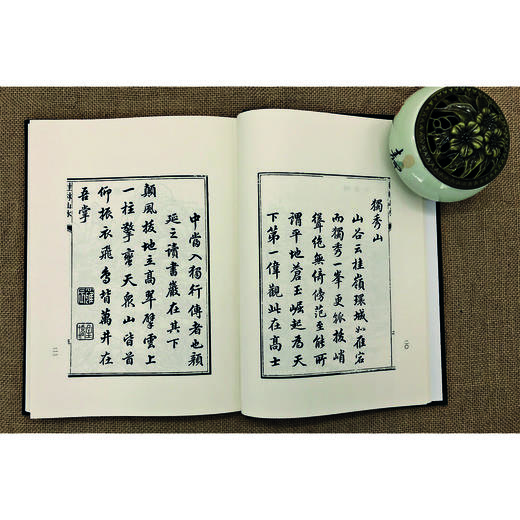 獨秀山
山谷云桂嶺環城如雁宕
而獨秀一峯更孤拔峭
聳絕無倚傍范至能所
謂平地蒼玉崛起為天
下第一偉觀此在高士
一〇
中當入獨行傳者也顏
延之讀書巖在其下
顛風拔地立高翠擘雲上
一柱擎寥天衆山皆首
仰振衣飛鳥背萬井在
吾掌
一一